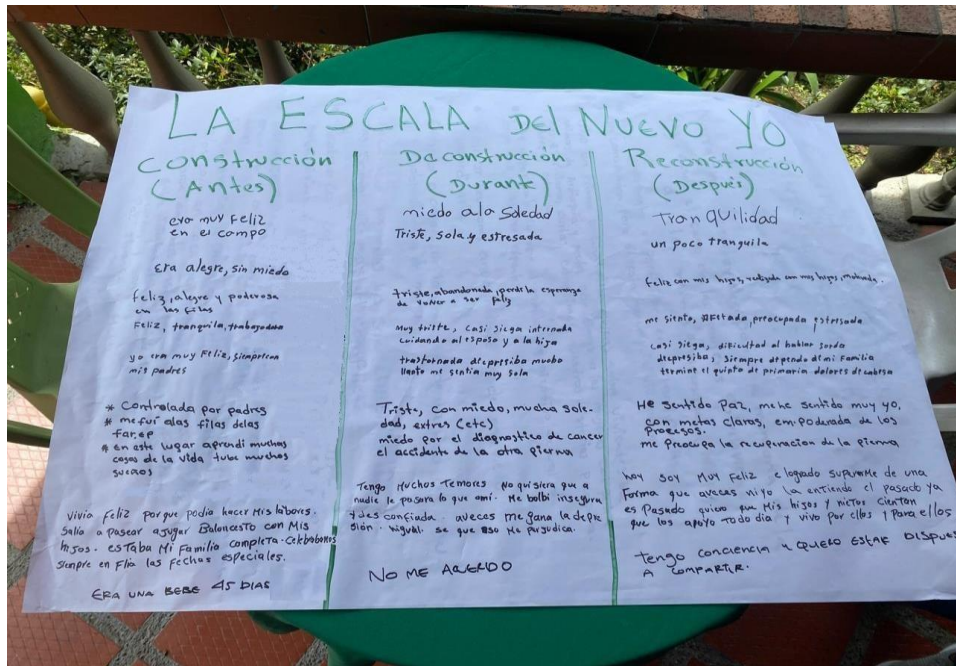 LA ESCALA Del NUevo YO
Construcción
(Antes)
era muy Feliz
en el campo
Era alegre, sin miedo
feliz, alegre y poderosa
en las filas
Feliz, tranquila, trabajadora
yo era muy Feliz, siempre con
mis padres
* Controlada por padres
* me fui alas filas delas
far.ep
* en este lugar aprendi muchas
cosas de la vida tube muchos
sueños
vivia Feliz porque podia hacer Mis labores.
Salia a pasear ajugar Baloncesto con Mis
hijos. esTaba Mi Familia completa. Celebrabamos
siempre en Flia las Fechas especiales.
ERA UNA BEBE 45 DIAS
Deconstrucción
(Durante)
miedo ala Soledad
Triste, Sola y estresada
triste, abandonada, perdi la esperanza
de volver a ser feliz
Muy triste, casi siega internada
cuidando al esposo y a la hija
trastornada depresiba mucho
llanto me sentia muy Sola
Triste, con miedo, mucha sole-
dad, extres (etc)
miedo por el diagnostico de cancer
el accidente de la otra pierna
Tengo Muchos Temores No quisiera que a
nadie le pasara lo que ami. Me bolbi insegura
y desconfiada. aveces me gana la depre
sión. se que eso Me perjudica.
NO ME ACUERDO
Reconstrucción
(Después)
TranQuilidad
un poco tranquila
feliz con mis hijos, con mis hijos, motivada.
me siento, afetada, preocupada estresada
casi siega, dificultad al hablar sorda
depresiba, siempre dependo di mi Familia
termine el quinto de primaria dolores de cabesa
He sentido Paz, me he sentido muy yo,
con metas claras, empoderada de los
Procesos.
me Preocupa la recuperacion de la pierna
hoy soy Muy Feliz e logrado superarMe de una
Forma que aveces ni yo La entiendo el pasado ya
es Pasado quiero que Mis hijos y nietos cientan
que los apoyo Todo dia y vivo por ellos y Para ellos
Tengo conciencia y QUERO ESTAR DISPUES
A COMPARTIR.